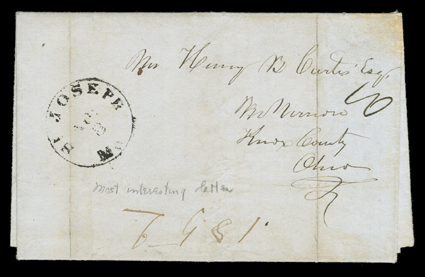 Mr Henry B Curtis Esqr
Mt Vernon
Knox County
Ohio
10
ST JOSEPH Mo
most interesting letter